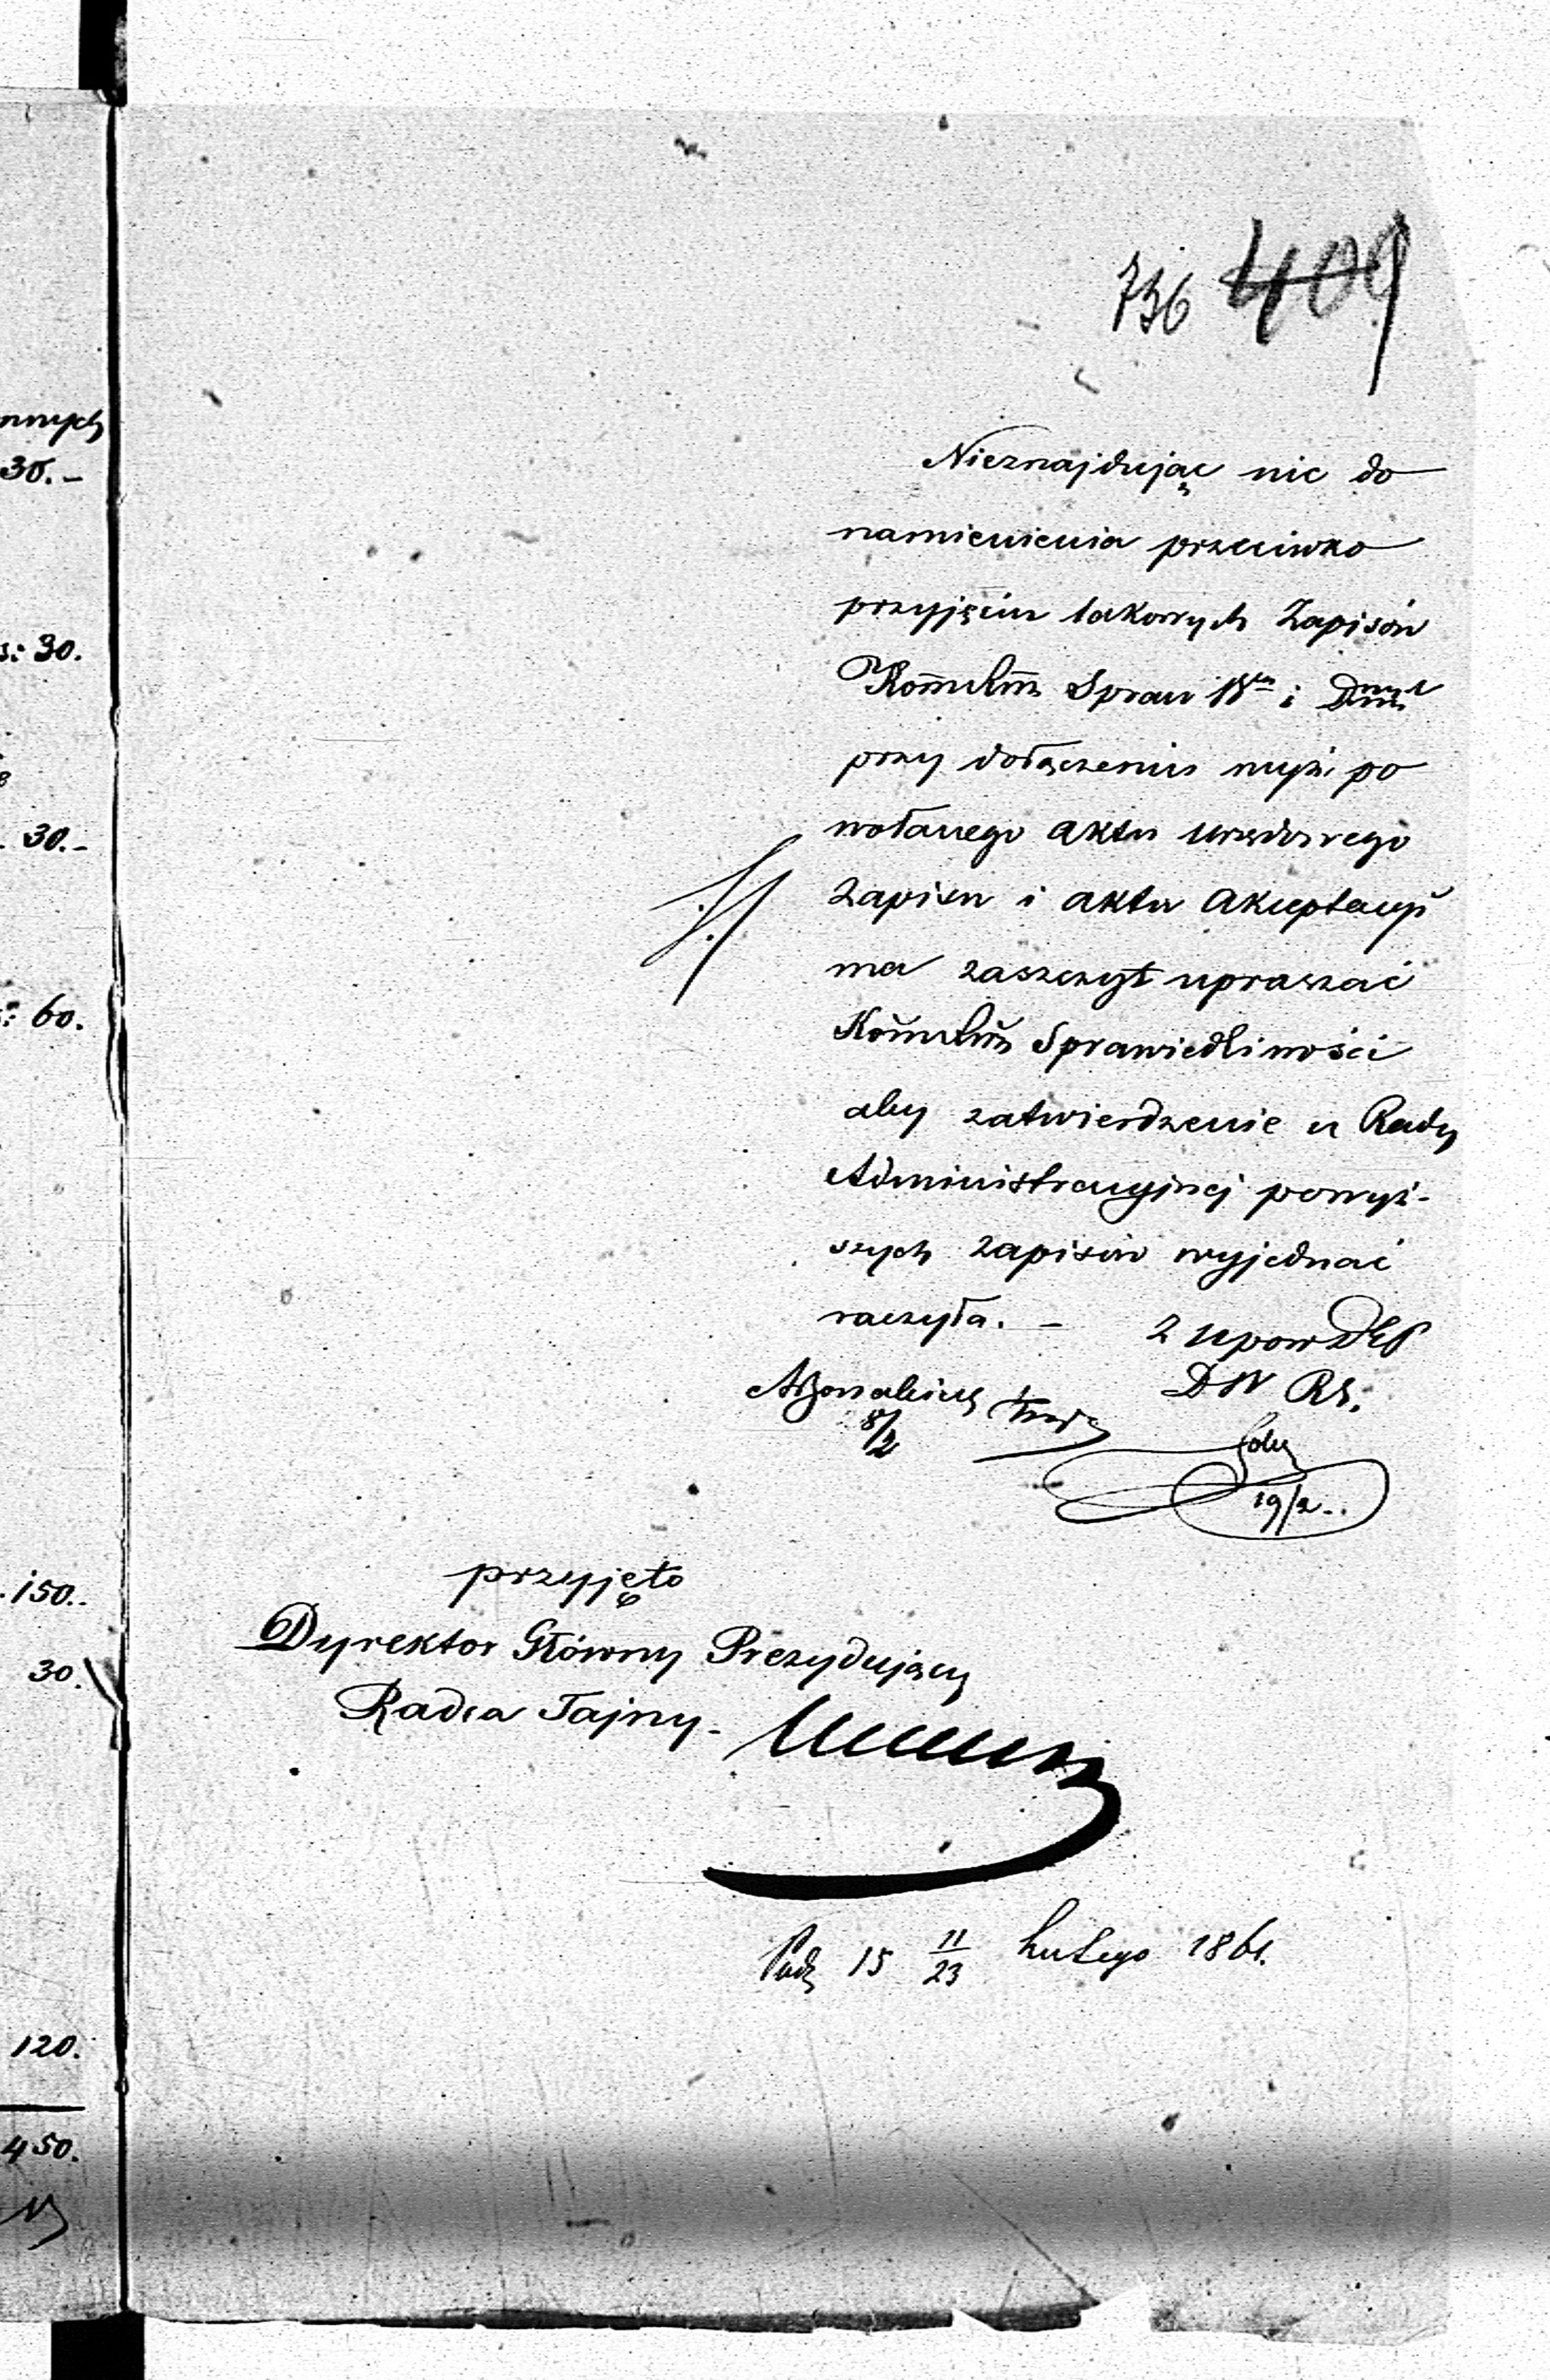 nnych
30.-
s: 30.
30.-
: 60.
.150..
30.
120.
450.
736 409
Nieznajdując nic do
namienienia przeciwko
przyjęciu takowych Zapisów
Spraw i
przy dołączeniu wyżi po
wołanego aktu urzędowego
zapisu i aktu akceptacyi
ma zaszczyt upraszać
Sprawiedliwości
aby zatwierdzenie u Rady
Administracyjnej powyż-
szych zapisów wyjednać
raczyła. -
Z upow
8/2
19/2..
przyjęto
Dyrektor Główny Prezydujący
Radca Tajny.
15 11/23 Lutego 1861.